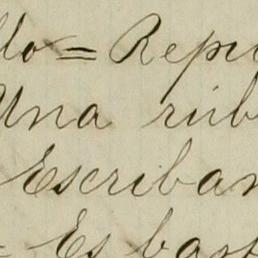 llo = Repu
Una rúb
Escriban
= Es bast